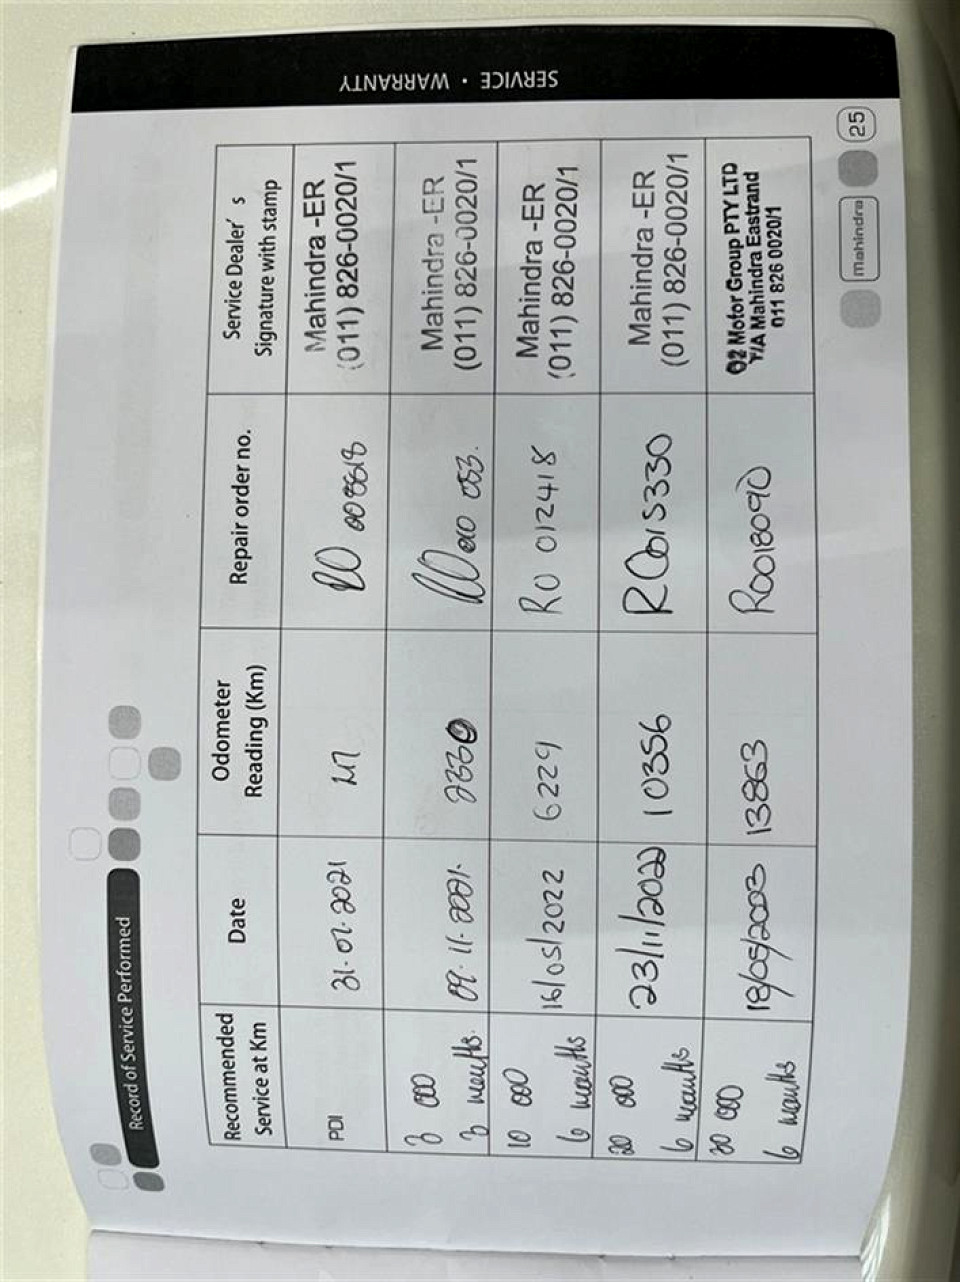 Record of Service Performed
Recommended Service at Km
Date
Odometer Reading (Km)
Repair order no.
Service Dealer's Signature with stamp
PDI
2021
Mahindra -ER
(011) 826-0020/1
3 000
3 months.
09. 11. 2021.
2330
RO 010 053.
Mahindra -ER
(011) 826-0020/1
10 000
6 months
16/05/2022
6229
RO 012418
Mahindra -ER
(011) 826-0020/1
20 000
6 months
23/11/2022
10356
RO015330
Mahindra -ER
(011) 826-0020/1
6 months
13863
RO018090
Q2 Motor Group PTY LTD
T/A Mahindra Eastrand
011 826 0020/1
SERVICE • WARRANTY
mahindra
25